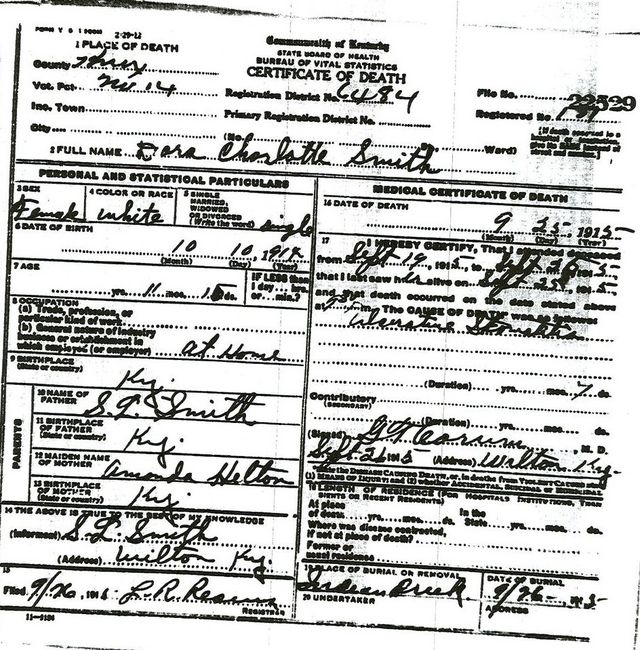 FORM V S 1
2-29-12
Commonwealth of Kentucky
STATE BOARD OF HEALTH
BUREAU OF VITAL STATISTICS
CERTIFICATE OF DEATH
1 PLACE OF DEATH
County Knox
Vot. Pct. No 14
Inc. Town
City
Registration District No. 6484
Primary Registration District No.
(No. Ward)
File No. 22529
Registered No.
[If death occurred in a hospital
give its NAME instead of street and number.]
2 FULL NAME Dora Charlotte Smith
PERSONAL AND STATISTICAL PARTICULARS
3 SEX
Female
4 COLOR OR RACE
White
5 SINGLE
MARRIED,
WIDOWED
OR DIVORCED
(Write the word) single
6 DATE OF BIRTH
10 10, 1914
(Month) (Day) (Year)
7 AGE
yrs. 11 mos. 15 ds.
IF LESS than
1 day... hrs.
or... min.?
8 OCCUPATION
(a) Trade, profession, or
particular kind of work
(b) General nature of industry
business or establishment in
which employed (or employer) at Home
9 BIRTHPLACE
(State or country) Ky.
PARENTS
10 NAME OF
FATHER S. L. Smith
11 BIRTHPLACE
OF FATHER
(State or country) Ky.
12 MAIDEN NAME
OF MOTHER Amanda Helton
13 BIRTHPLACE
OF MOTHER
(State or country) Ky.
14 THE ABOVE IS TRUE TO THE BEST OF MY KNOWLEDGE
(Informant) S. L. Smith
(Address) Wilton Ky.
15
Filed 9/26, 1915 L. R.
REGISTRAR
11-1184
MEDICAL CERTIFICATE OF DEATH
16 DATE OF DEATH
9 25, 1915
(Month) (Day) (Year)
17 I HEREBY CERTIFY, That I attended deceased
from Sept 19, 1915, to Sept 25, 1915,
that I last saw her alive on Sept 25, 1915,
and that death occurred on the date stated above
at m. The CAUSE OF DEATH was as follows:
Ulcerative Stomatitis
(Duration) yrs. mos. 7 ds.
Contributory
(SECONDARY)
(Duration) yrs. mos. ds.
(Signed) M. D.
Sept 26 1915 (Address) Wilton Ky.
State the DISEASE CAUSING DEATH, or, in deaths from VIOLENT CAUSES
(1) MEANS OF INJURY; and (2) whether ACCIDENTAL, SUICIDAL or HOMICIDAL
18 LENGTH OF RESIDENCE (FOR HOSPITALS, INSTITUTIONS, TRANSIENTS OR RECENT RESIDENTS)
At place
of death yrs. mos. ds.
In the
State yrs. mos. ds.
Where was disease contracted,
If not at place of death?
Former or
usual residence
19 PLACE OF BURIAL OR REMOVAL
Indian Creek
DATE OF BURIAL
9/26, 1915
20 UNDERTAKER
ADDRESS